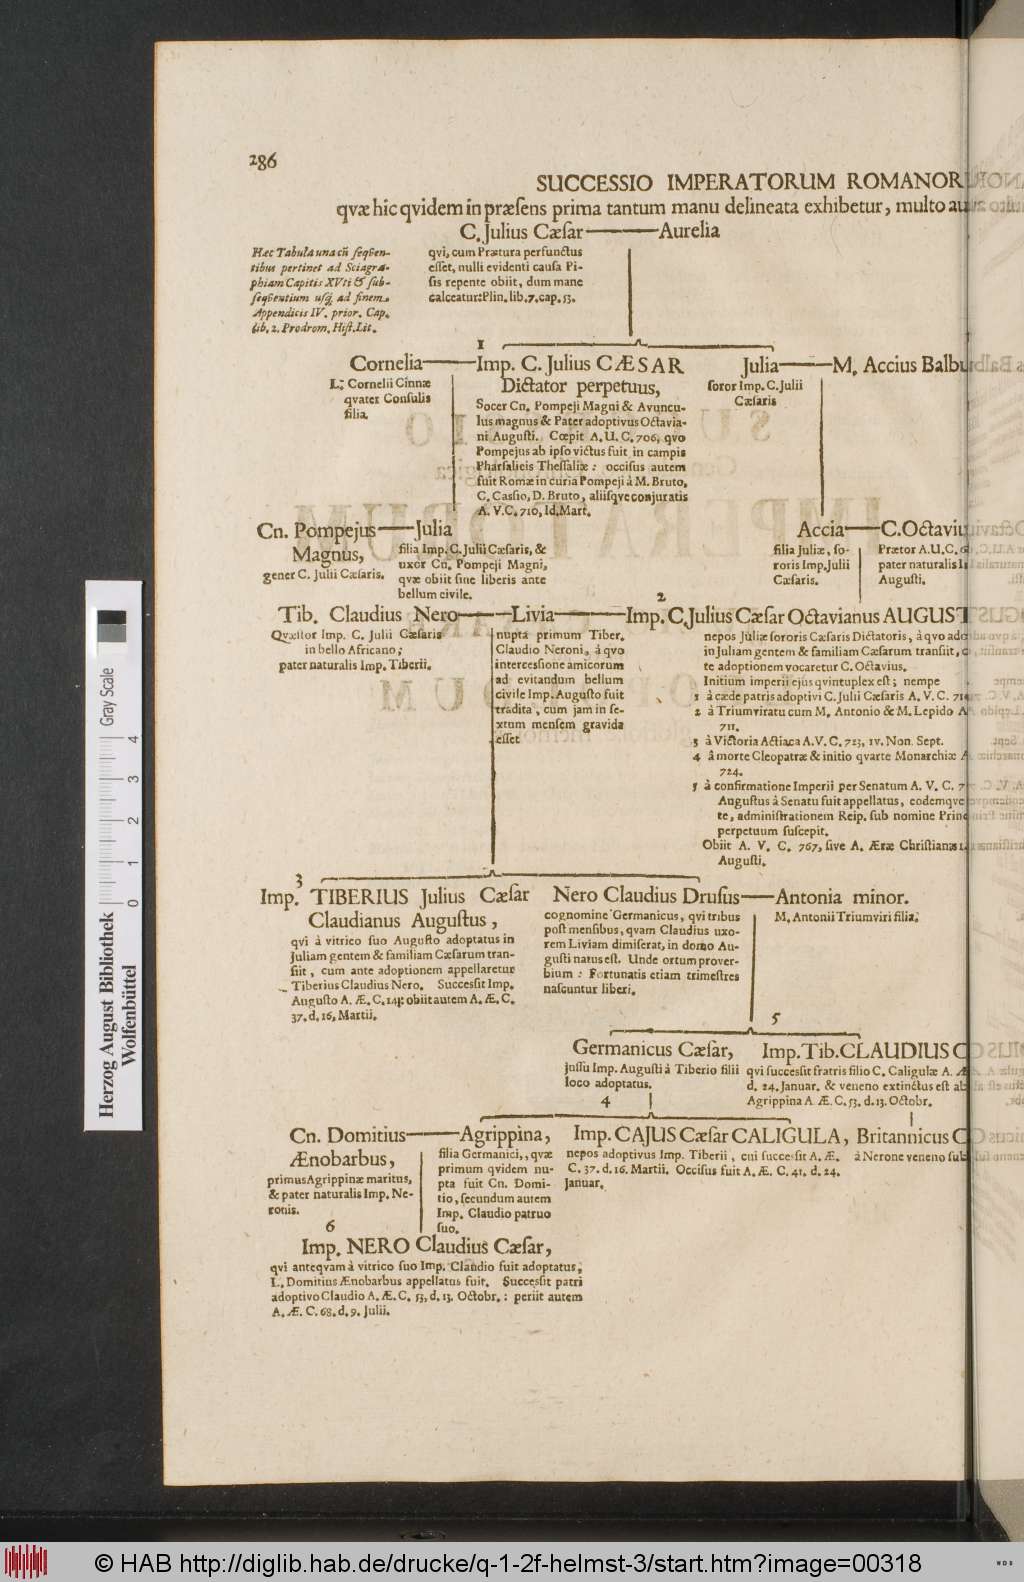 286
SUCCESSIO IMPERATORUM ROMANOR
qvæ hic qvidem in præsens prima tantum manu delineata exhibetur, multo
C. Julius Cæsar Aurelia
Hæc Tabula una cū seqven-
tibus pertinet ad Sciagra-
phiam Capitis XVti & sub-
seqventium usq; ad finem
Appendicis IV. prior. Cap.
lib. 2. Prodrom. Hist. Lit.
qvi, cum Prætura perfunctus
esset, nulli evidenti causa Pi-
sis repente obiit, dum mane
calceatur: Plin. lib. 7. cap. 53.
1
Cornelia Imp. C. Julius CÆSAR Julia M. Accius Balbu
L. Cornelii Cinnæ
qvater Consulis
filia.
Dictator perpetuus,
Socer Cn. Pompeji Magni & Avuncu-
lus magnus & Pater adoptivus Octavia-
ni Augusti. Cœpit A. U. C. 706, qvo
Pompejus ab ipso victus fuit in campis
Pharsalicis Thessaliæ: occisus autem
fuit Romæ in curia Pompeji à M. Bruto,
C. Cassio, D. Bruto, aliisqve conjuratis
A. V. C. 710, Id. Mart.
soror Imp. C. Julii
Cæsaris
Cn. Pompejus Julia Accia C. Octaviu
Magnus,
gener C. Julii Cæsaris.
filia Imp. C. Julii Cæsaris, &
uxor Cn. Pompeji Magni,
qvæ obiit sine liberis ante
bellum civile.
filia Juliæ, so-
roris Imp. Julii
Cæsaris.
Prætor A.U.C.
pater naturalis
Augusti.
2
Tib. Claudius Nero Livia Imp. C. Julius Cæsar Octavianus AUGUST
Qvæstor Imp. C. Julii Cæsaris
in bello Africano;
pater naturalis Imp. Tiberii.
nupta primum Tiber.
Claudio Neroni, à qvo
intercessione amicorum
ad evitandum bellum
civile Imp. Augusto fuit
tradita, cum jam in se-
xtum mensem gravida
esset
nepos Juliæ sororis Cæsaris Dictatoris, à qvo ado
in Juliam gentem & familiam Cæsarum transiit,
te adoptionem vocaretur C. Octavius.
Initium imperii ejus qvintuplex est; nempe
1 à cæde patris adoptivi C. Julii Cæsaris A. V. C. 71
2 à Triumviratu cum M. Antonio & M. Lepido A
711.
3 à Victoria Actiaca A. V. C. 723, IV. Non. Sept.
4 à morte Cleopatræ & initio qvarte Monarchiæ A
724.
5 à confirmatione Imperii per Senatum A. V. C. 7
Augustus à Senatu fuit appellatus, eodemqve
te, administrationem Reip. sub nomine Prin
perpetuum suscepit.
Obiit A. V. C. 767, sive A. Æræ Christianæ
Augusti.
3
Imp. TIBERIUS Julius Cæsar Nero Claudius Drusus Antonia minor.
Claudianus Augustus,
qvi à vitrico suo Augusto adoptatus in
Juliam gentem & familiam Cæsarum tran-
siit, cum ante adoptionem appellaretur
Tiberius Claudius Nero. Successit Imp.
Augusto A. Æ. C. 14; obiit autem A. Æ. C.
37. d. 16. Martii.
cognomine Germanicus, qvi tribus
post mensibus, qvam Claudius uxo-
rem Liviam dimiserat, in domo Au-
gusti natus est. Unde ortum prover-
bium: Fortunatis etiam trimestres
nascuntur liberi.
M. Antonii Triumviri filia.
5
Germanicus Cæsar, Imp. Tib. CLAUDIUS C
jussu Imp. Augusti à Tiberio filii
loco adoptatus.
qvi successit fratris filio C. Caligulæ A. Æ
d. 24. Januar. & veneno extinctus est ab
Agrippina A Æ. C. 53. d. 13. Octobr.
4
Cn. Domitius Agrippina, Imp. CAJUS Cæsar CALIGULA, Britannicus C
Ænobarbus,
primus Agrippinæ maritus,
& pater naturalis Imp. Ne-
ronis.
filia Germanici, qvæ
primum qvidem nu-
pta fuit Cn. Domi-
tio, secundum autem
Imp. Claudio patruo
suo.
nepos adoptivus Imp. Tiberii, cui successit A. Æ.
C. 37. d. 16. Martii. Occisus fuit A. Æ. C. 41. d. 24.
Januar.
à Nerone veneno sub
6
Imp. NERO Claudius Cæsar,
qvi anteqvam à vitrico suo Imp. Claudio fuit adoptatus,
L. Domitius Ænobarbus appellatus fuit. Successit patri
adoptivo Claudio A. Æ. C. 53, d. 13. Octobr.: periit autem
A. Æ. C. 68. d. 9. Julii.
Herzog August Bibliothek
Wolfenbüttel
0 1 2 3 4
Gray Scale
© HAB http://diglib.hab.de/drucke/q-1-2f-helmst-3/start.htm?image=00318
WDB